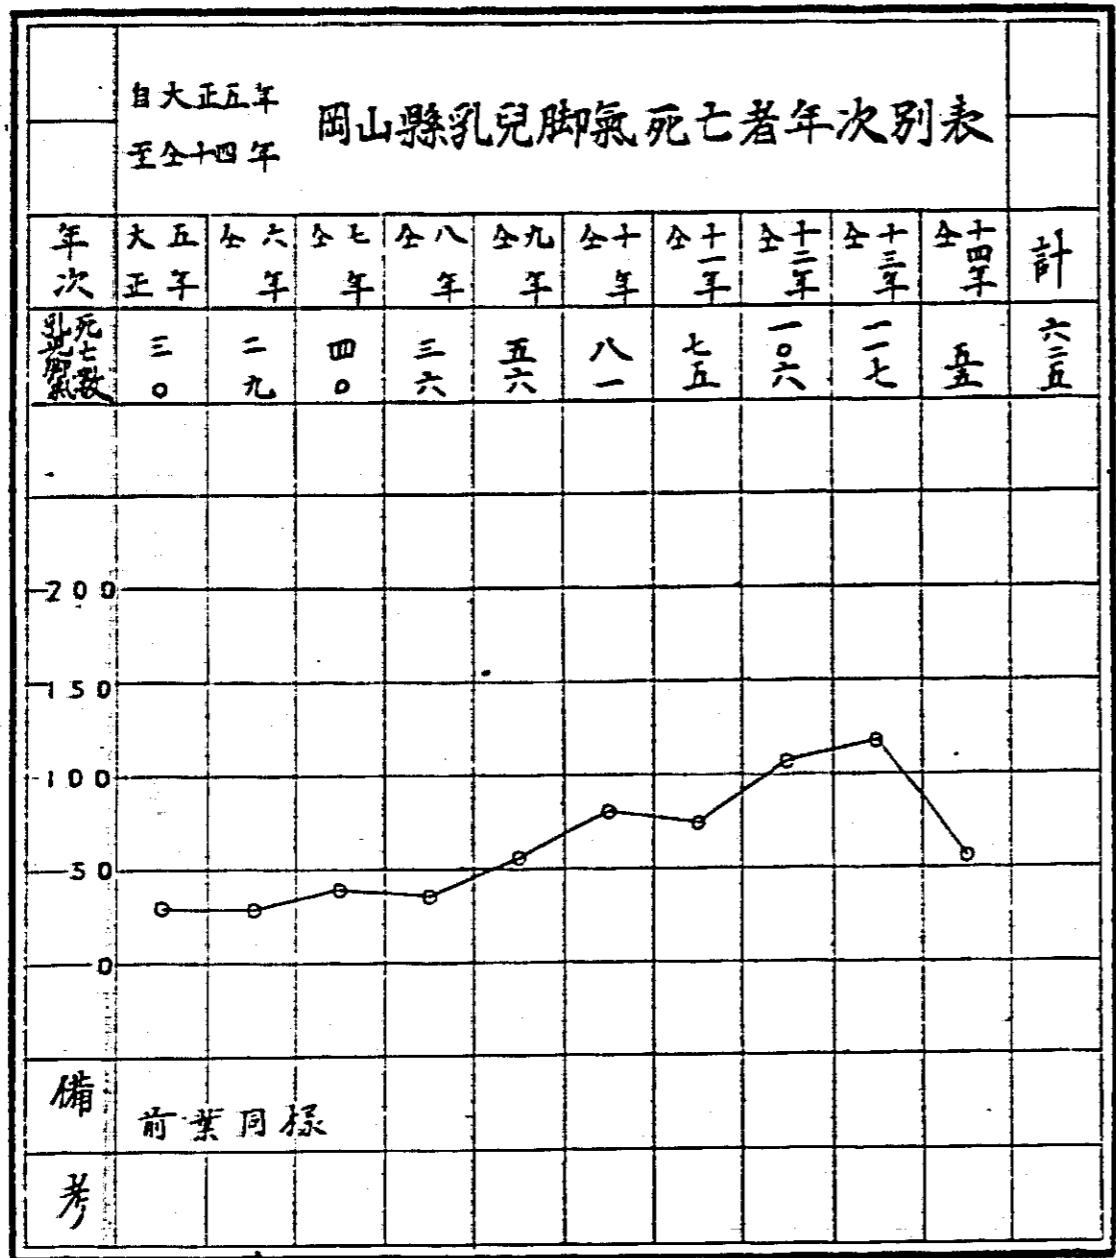 自大正五年
至仝十四年
岡山縣乳兒脚氣死亡者年次別表
年次 大正五年 仝六年 仝七年 仝八年 仝九年 仝十年 仝十一年 仝十二年 仝十三年 仝十四年 計
乳兒脚氣死亡数 三〇 二九 四〇 三六 五六 八一 七五 一〇六 一一七 五五 六二五
200
150
100
50
0
備考 前葉同様